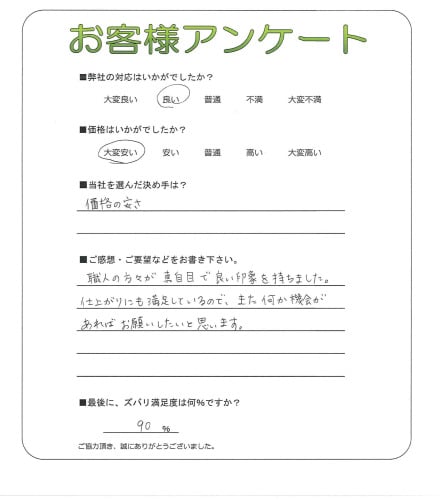 お客様アンケート
■弊社の対応はいかがでしたか？
大変良い 良い 普通 不満 大変不満
■価格はいかがでしたか？
大変安い 安い 普通 高い 大変高い
■当社を選んだ決め手は？
価格の安さ
■ご感想・ご要望などをお書き下さい。
職人の方々が真面目で良い印象を持ちました。
仕上がりにも満足しているので、また何か機会が
あればお願いしたいと思います。
■最後に、ズバリ満足度は何％ですか？
90 ％
ご協力頂き、誠にありがとうございました。